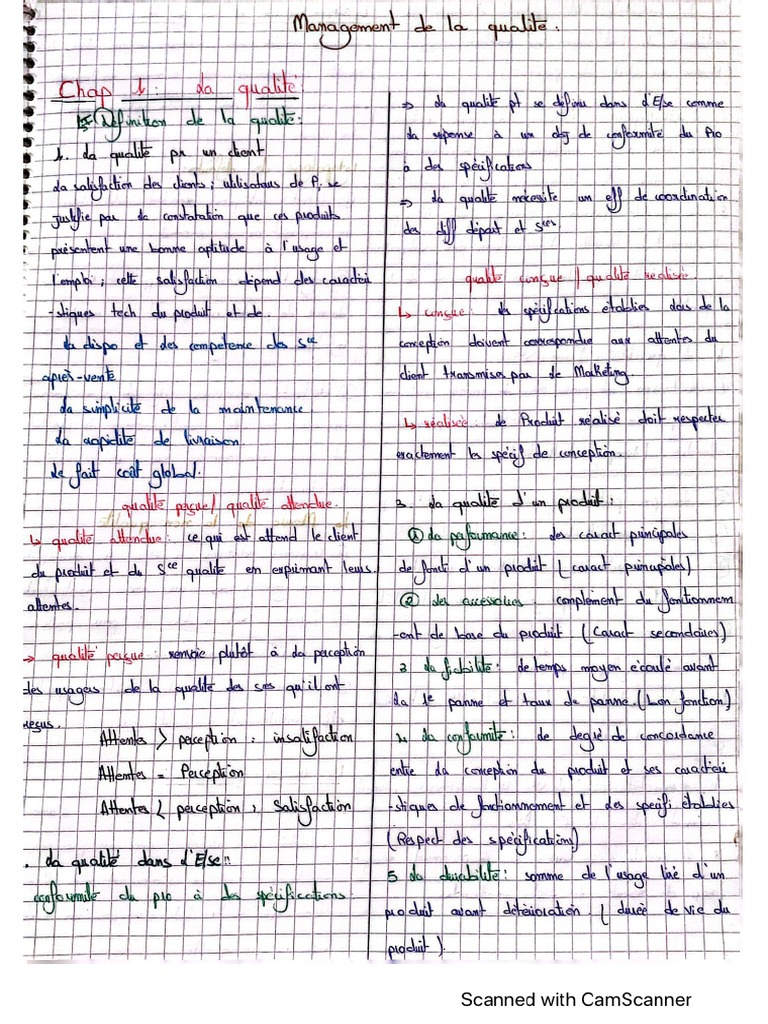 Management de la qualité :
Chap 1 : La qualité
Définition de la qualité :
1. La qualité pr un client
La satisfaction des clients ; utilisateurs de P, se
justifie par la constatation que ces produits
présentent une bonne aptitude à l'usage et
l'emploi ; cette satisfaction dépend des caracté
-stiques tech du produit et de.
La dispo et des competence des Sce
après-vente
La simplicité de la maintenance.
La rapidité de livraison.
le fait coût global.
qualité perçue / qualité attendue.
↳ qualité attendue : ce qui est attend le client
du produit et du Sce qualité en exprimant leurs
attentes.
→ qualité perçue : renvoie plutôt à la perception
des usagers de la qualité des qu'il ont
reçus.
Attentes > perception : insatifaction
Attentes = Perception
Attentes < perception : Satisfaction
. La qualité dans l'E/se ::
conformité du pro à des spécifications
⇒ La qualité pt se définir dans l'E/se comme
la réponse à un obj de conformité du Pro
à des spécifications
⇒ La qualité nécessite un eff de coordination
des diff départ et Sces
qualité conçue / qualité réalisée
↳ conçue : les spécifications établies lors de la
conception doivent correspondre aux attentes du
client transmises par le Marketing.
↳ réalisée : le Produit réalisé doit respecter
exactement les spécif de conception.
3. La qualité d'un produit :
① La performance : les caract principales
de foncti d'un produit ( caract principales)
② les accessoires : complément du fonctionnem
-ent de base du produit (Caract secondaires)
3 La fiabilité : le temps moyen écoulé avant
la 1e panne et taux de panne. (bon fonction)
4. La conformité : le degré de concordance
entre la conception du produit et ses caractéri
-stiques de fonctionnement et des specifi établies
(Respect des spécifications)
5 La durabilité : somme de l'usage tiré d'un
produit avant détérioration. ( durée de vie du
produit ).
Scanned with CamScanner